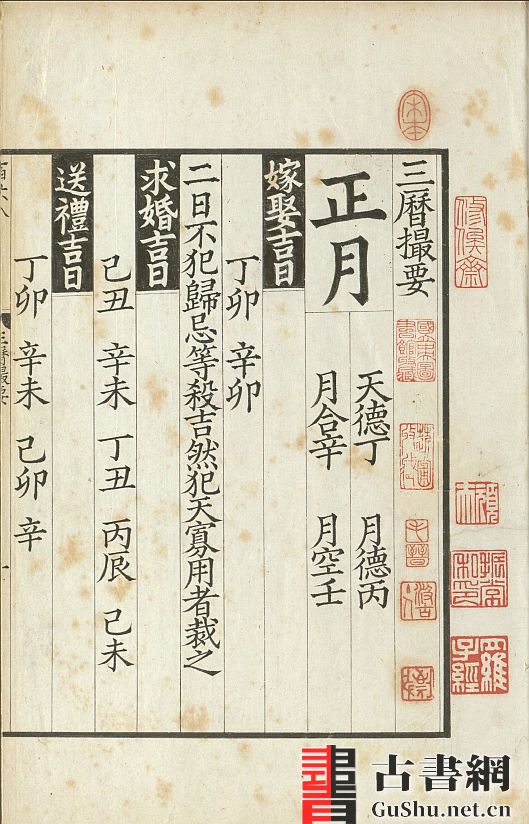 三曆撮要
正月
天德丁 月德丙
月合辛 月空壬
嫁娶吉日
丁卯 辛卯
二日不犯歸忌等殺吉然犯天寡用者裁之
求婚吉日
己丑 辛未 丁丑 丙辰 己未
送禮吉日
丁卯 辛未 己卯 辛
古書網
GuShu.net.cn